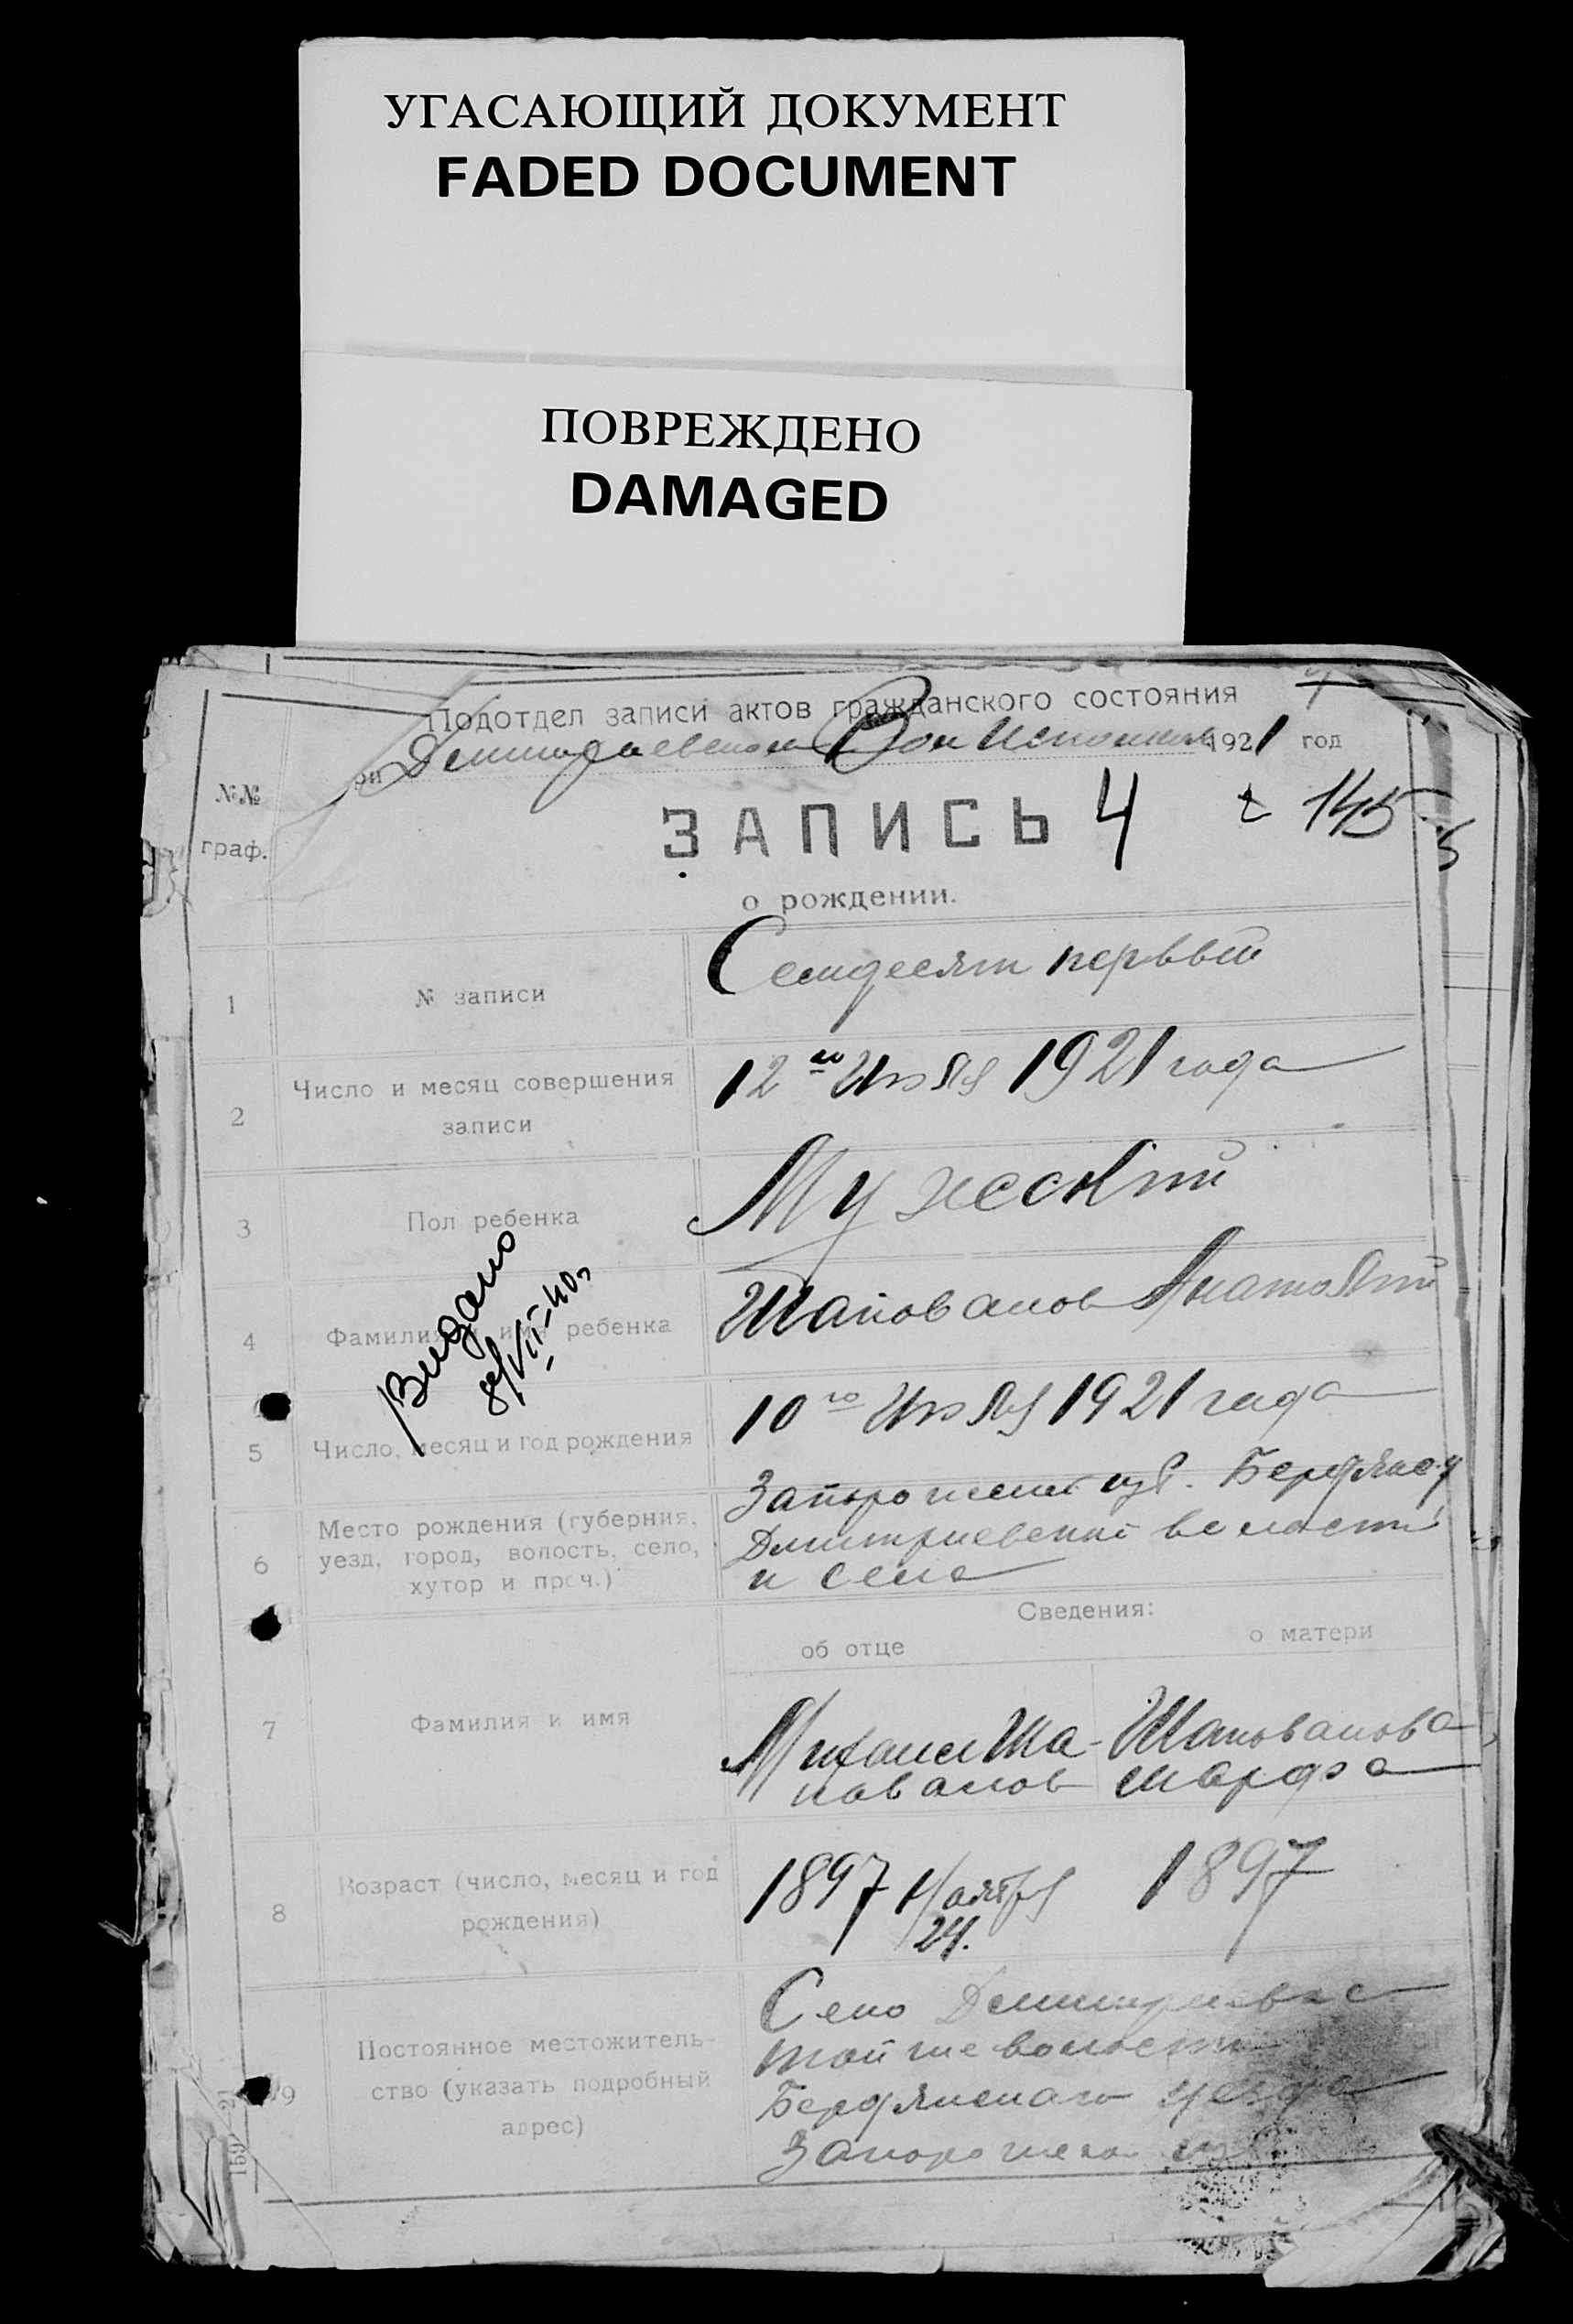 УГАСАЮЩИЙ ДОКУМЕНТ
FADED DOCUMENT
ПОВРЕЖДЕНО
DAMAGED
Подотдел записи актов гражданского состояния
при 1921 год
№№
граф.
ЗАПИСЬ 4 145
о рождении.
1 № записи Семидесят первый
2 Число и месяц совершения
записи
12го Июля 1921 года
3 Пол ребенка Мужеский
4 Фамилия и имя ребенка Шаповалов Анатолий
Видано
8/VII-40
5 Число, месяц и год рождения 10го Июля 1921 года
6 Место рождения (губерния,
уезд, город, волость, село,
хутор и проч.)
Запорожской губ. Бердянс. у
Дмитриевской волости
и села
Сведения:
об отце о матери
7 Фамилия и имя
Михаил Ша- Шаповалова
повалов Марфа
8 Возраст (число, месяц и год
рождения)
1897 Ноября 1897
24.
9 Постоянное местожитель-
ство (указать подробный
адрес)
Село
той же волости
Бердянскаго уезда
159 21